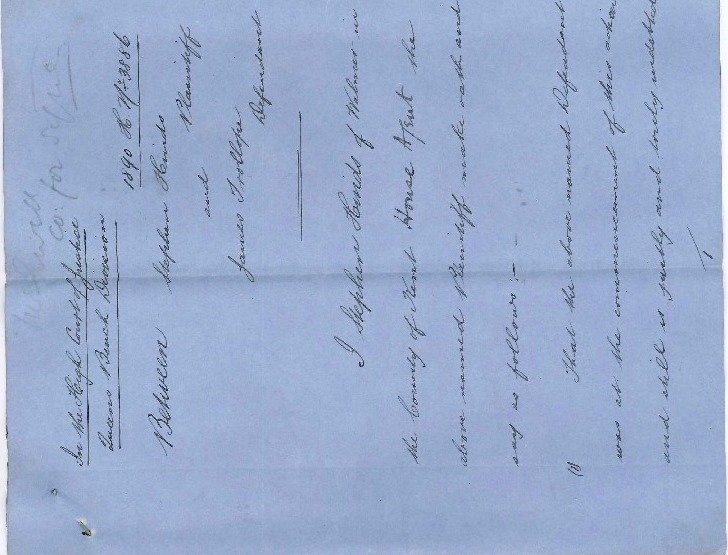 co: for
In the High Court of Justice
Queens Bench Division
1890 H. No. 3886
Between Stephen Hinds Plaintiff
and
James Trollope Defendant
I Stephen Hinds of Walmer in
the County of Kent House Agent the
above named Plaintiff make oath and
say as follows:-
(1) That the above named Defendant
was at the commencement of this action
and still is justly and truly indebted